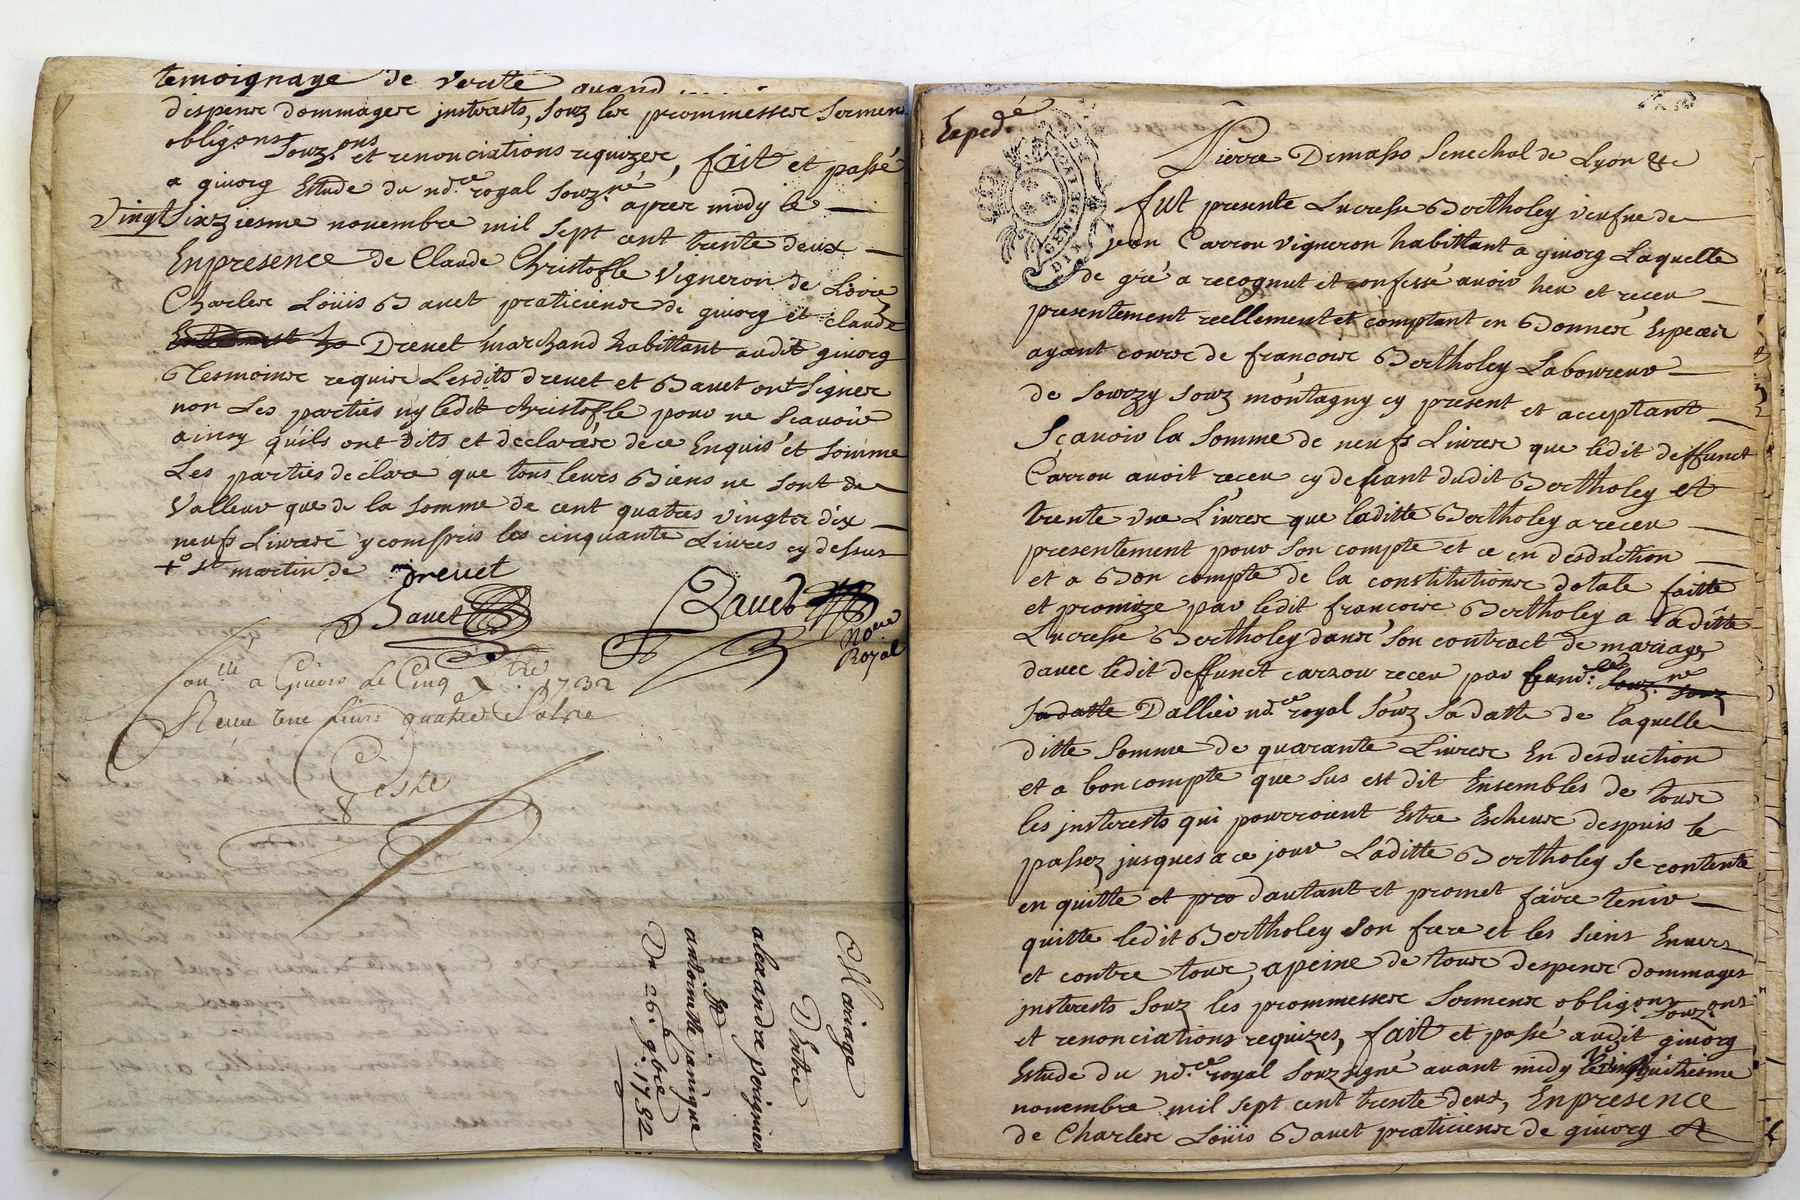 temoignage de verite quand
despens dommages justerests, souz les prommesses sermens
obligons souz.ons et renonciations requizes, fait et passé
a givorg Estude du nd.re royal souz.né apres midy le
vingt sixziesme novembre mil sept cent trente deux
En presence de Claude Christofle Vigneron de
Charles Loüis Bavet praticiens de givorg et claude
Drevet marchand habittant audit givorg
Tesmoins requis Lesdits drevet et Bavet ont signer
non Les parties ny ledit christofle pour ne scavoir
ainsy quils ont dits et declarés de ce Enquis et somme
Les parties declare que tous leurs Biens ne sont de
Valleur que de la somme de cent quatres vingts dix
neufs Livres y compris les cinquante Livres cy dessus
+ St martin de
Drevet
Bavet
Bavet
No.re
Royal
a Givors Le Cinq Xbre 1732
Reçu une livre quatre sols
Mariage
D'Entre
alexandre poignieu
Et
antoinette janique
Du 26.e 9.bre 1732
Exped.é
GEN.DE
Pierre Demasso Senechal de Lyon &c
fut presente Lucresse Bertholey veufue de
jean Carrou vigneron habittant a givorg Laquelle
de gré a recognut et confessé avoir heu et receu
presentement reellement et comptant en Bonnes Especes
ayant cours de francois Bertholey Laboureur
de sourzy souz montagny cy present et acceptant
Sçavoir la somme de neufs Livres que ledit deffunct
Carrou avoit receu cy devant dudit Bertholey et
trente une Livres que laditte Bertholey a receu
presentement pour son compte et ce en desduction
et a Bon compte de la constitutions dotale faitte
et promize par ledit francois Bertholey a laditte
Lucresse Bertholey dans son contract de mariage
davec ledit deffunct carrou receu par
sa datte Dallier nd.re royal souz sa datte de laquelle
ditte somme de quarante Livres En desduction
et a bon compte que sus est dit Ensembles de tous
les justerests qui pourroient Estre Escheus despuis le
passez jusques a ce jour Laditte Bertholey se contente
en quitte et pro dautant et promet faire tenir
quitte ledit Bertholey son frere et les siens Envers
et contre tous, a peine de tous despens dommages
justerests souz les prommesses sermens oblig.ons souz.ons
et renonciations requizes, fait et passé audit givorg
Estude du nd.re royal souzsigné avant midy le vingthuitiesme
novembre mil sept cent trente deux, En presence
de Charles Loüis Bavet praticiens de givorg et